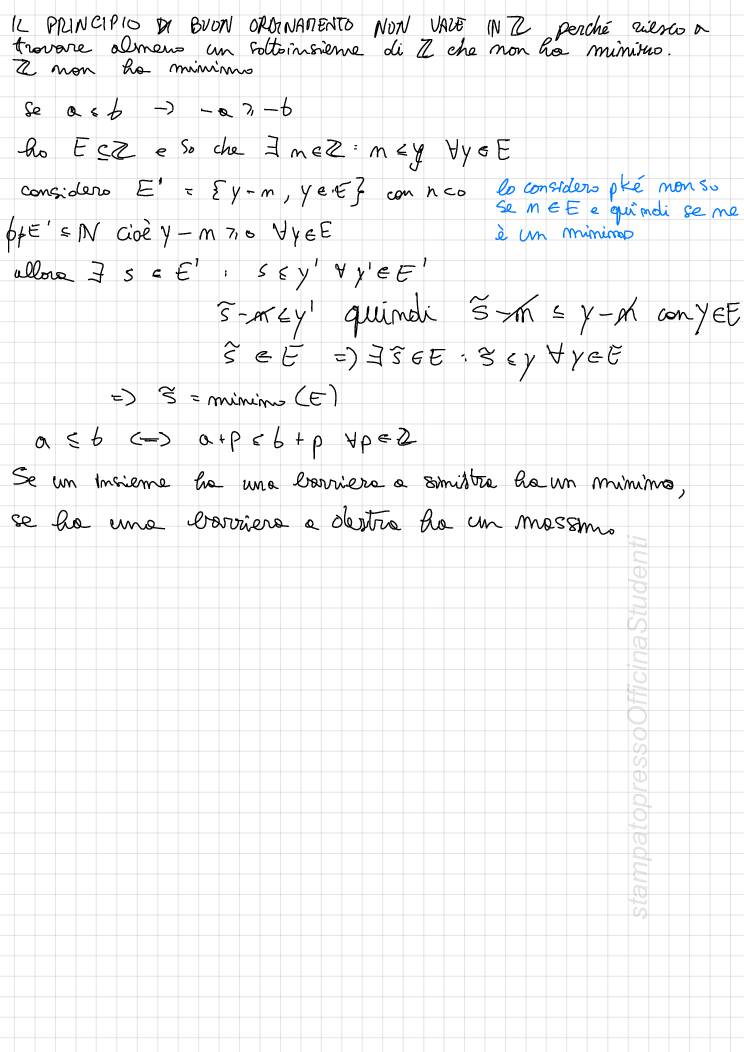 IL PRINCIPIO DI BUON ORDINAMENTO NON VALE IN ℤ perché riesco a
trovare almeno un sottoinsieme di ℤ che non ha minimo.
ℤ non ha minimo
se a ≤ b → -a ≥ -b
ho E ⊆ ℤ e so che ∃ m ∈ ℤ : m ≤ y ∀y ∈ E
considero E' = {y-m, y ∈ E} con m<0
lo considero pké non so
se m ∈ E e quindi se ne
è un minimo
E' ⊆ ℕ cioè y-m ≥ 0 ∀y∈E
allora ∃ s ∈ E' : s ≤ y' ∀ y' ∈ E'
s̃-m ≤ y' quindi s̃-m ≤ y-m con y∈E
s̃ ∈ E => ∃ s̃ ∈ E : s̃ ≤ y ∀ y ∈ E
=> s̃ = minimo (E)
a ≤ b <-> a+p ≤ b+p ∀p ∈ ℤ
Se un insieme ha una barriera a sinistra ha un minimo,
se ha una barriera a destra ha un massimo
stampatopressoOfficinaStudenti